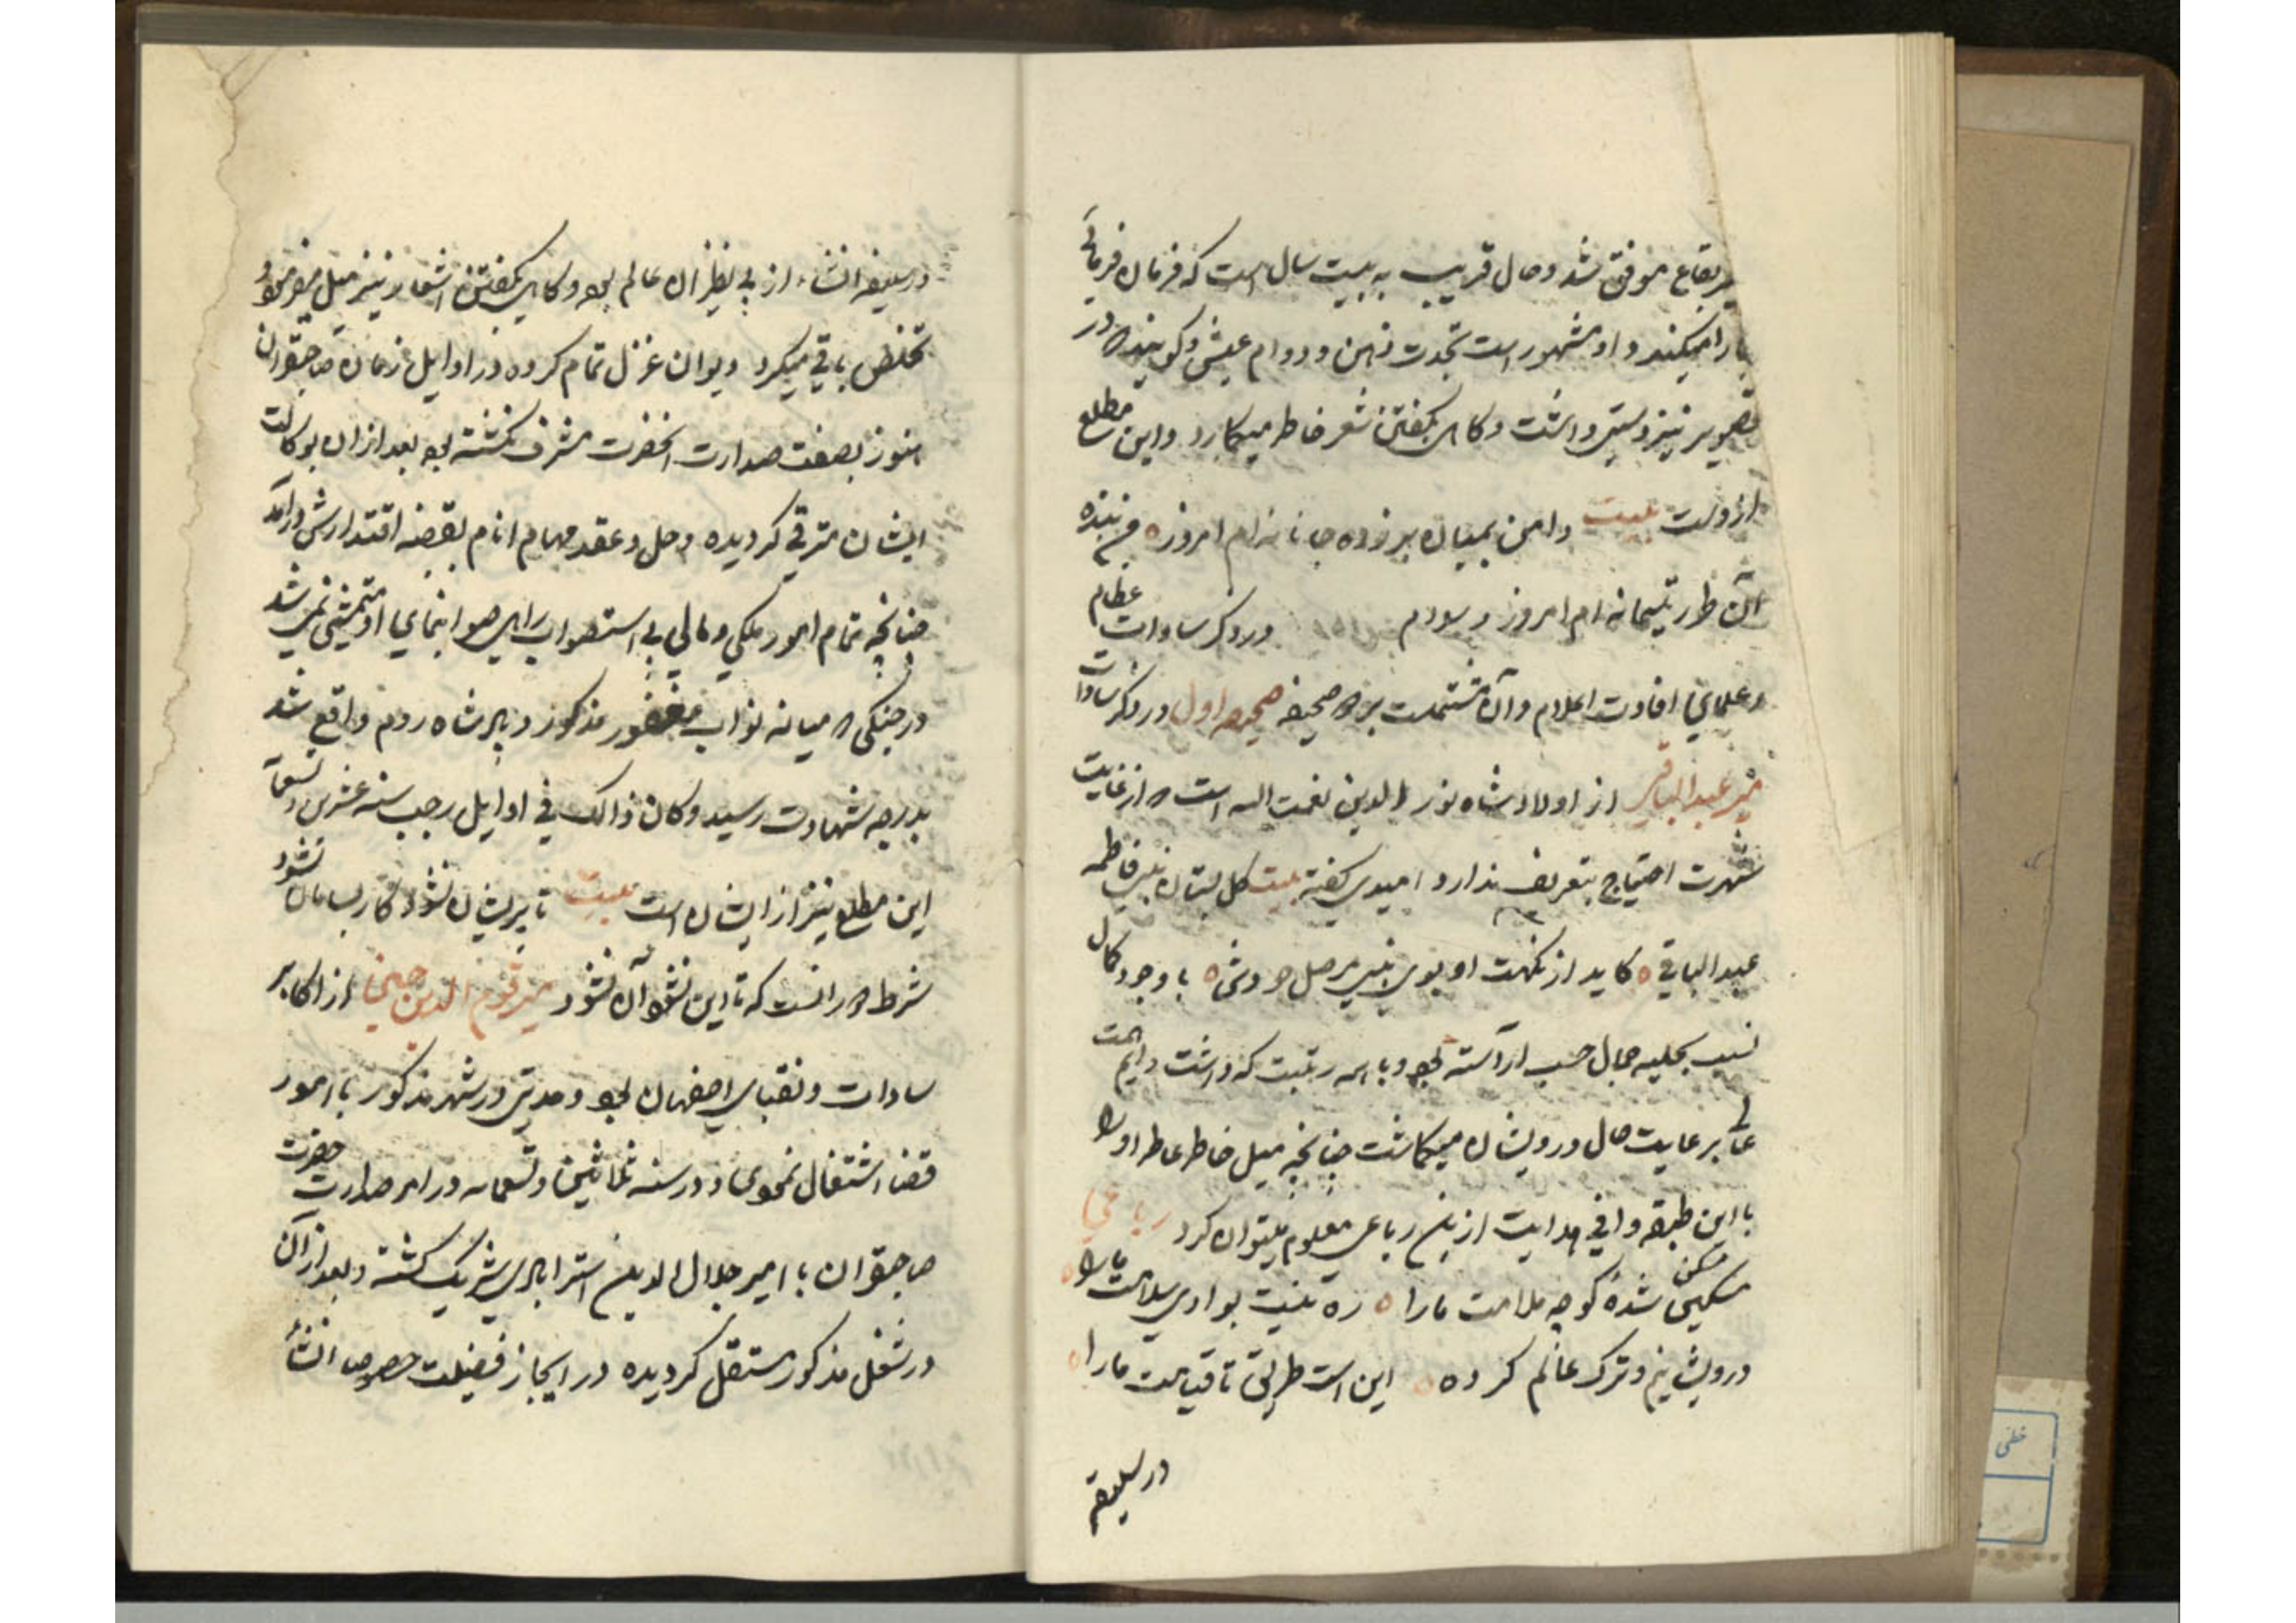 بقاع موفق شد و حال قریب به بیست سال است که فرمان فرمائی
را میکند و او مشهور است بحدت ذهن و دوام عیش و گویند که در
تصویر نیز دستی داشت و گاهی بگفتن شعر خاطر میگمارد و این مطلع
ازوست بیت دامن بمیان بر زده جانانه ام امروز
آن طور یتیمانه ام امروز در ذکر سادات عظام
و علمای افادت اعلام و آن مشتملست بر دو صحیفه صحیفه اول در ذکر سادات
میر عبدالباقی از اولاد شاه نور الدین نعمت الله است که از غایت
شهرت احتیاج بتعریف ندارد امیدی گفته بیت گل بستان نبی فاطمه
عبدالباقی که آید از نکهت او بوی نبی با وجود کمال
نسب بحلیه جمال حسب آراسته بود و با همه رتبت که داشت دایم همت
عالی بر رعایت حال درویشان میگماشت چنانچه میل خاطر عاطر او را
با این طبقه وافی هدایت از ین رباعی معلوم میتوان کرد رباعی
مسکن شده کوچه ملامت ما را ره نیست بوادی سلامت ما را
درویشانیم و ترک عالم کرده این است طریق تا قیامت ما را
در سلیقه
در سلیقه انشاء از بی نظیران عالم بود و گاهی بگفتن اشعار نیز میل میفرمود و
تخلص باقی میکرد دیوان غزل تمام کرده در اوایل زمان صاحبقران
هنوز بصفت صدارت آنحضرت مشرف نگشته بود بعد از آن بوکالت
ایشان مترقی گردیده و حل و عقد مهام انام بقبضه اقتدارش درآمد
چنانچه تمام امور ملکی و مالی بی استصواب رای صوابنمای او متمشی نمی شد
در جنگی که میانه نواب مغفور مذکور و پادشاه روم واقع شد
بدرجه شهادت رسید و کان ذالک فی اوایل رجب سنه عشرین و تسعمائه
این مطلع نیز از ایشان است بیت تا پریشان نشود کار بسامان نشود
شرط در آنست که تا این نشود آن نشود میر قوم الدین حسینی از اکابر
سادات و نقبای اصفهان بود و مدتی در شهر مذکور با امور
قضا اشتغال نمودی و در سنه ثمانین و تسعمایه در امر صدارت حضرت
صاحبقران با امیر جلال الدین استرابادی شریک گشته و بعد از آن
در شغل مذکور مستقل گردیده در ایجاز فضیلت خصوصا انشاء
خطی